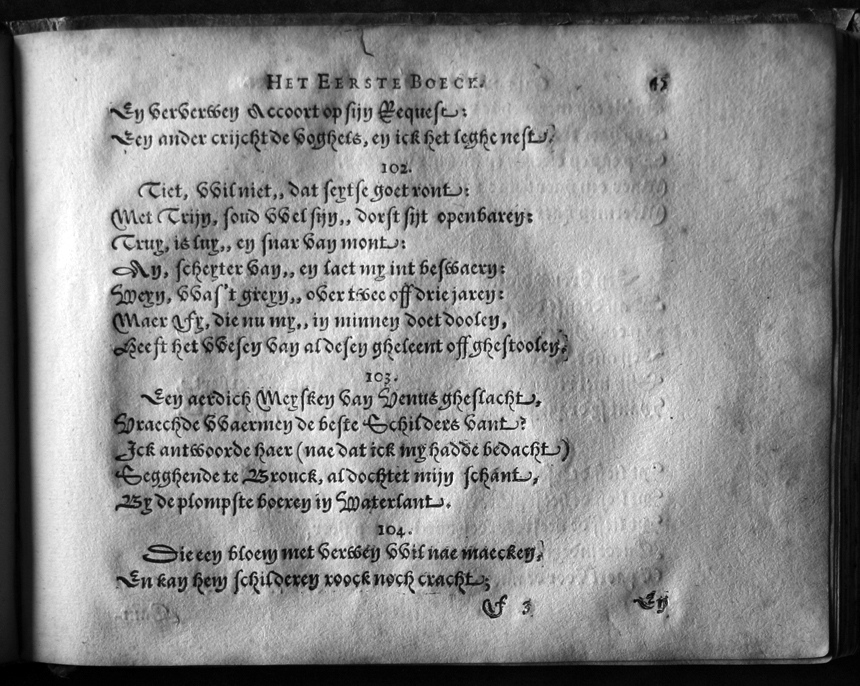 HET EERSTE BOECK. 45
En ververwen Accoort op sijn Request:
Een ander crijcht de voghels, en ick het leghe nest.
102.
Tiet, wil niet,, dat seytse goet ront:
Met Trijn, soud wel sijn,, dorst sijt openbaren:
Truy, is luy,, en snar van mont:
Ay, scheyter van,, en laet my int beswaern:
Weyn, was't greyn,, over twee off drie jaren:
Maer Yfy, die nu my,, in minnen doet doolen,
Heeft het wesen van al desen gheleent off ghestoolen.
103.
Een aerdich Meysken van Venus gheslacht,
Vraechde waermen de beste Schilders vant?
Ick antwoorde haer (nae dat ick my hadde bedacht)
Segghende te Brouck, al dochtet mijn schant,
By de plompste boeren in Waterlant.
104.
Die een bloem met verwen wil nae maecken,
En kan hem schilderen roock noch cracht;
f 3 En